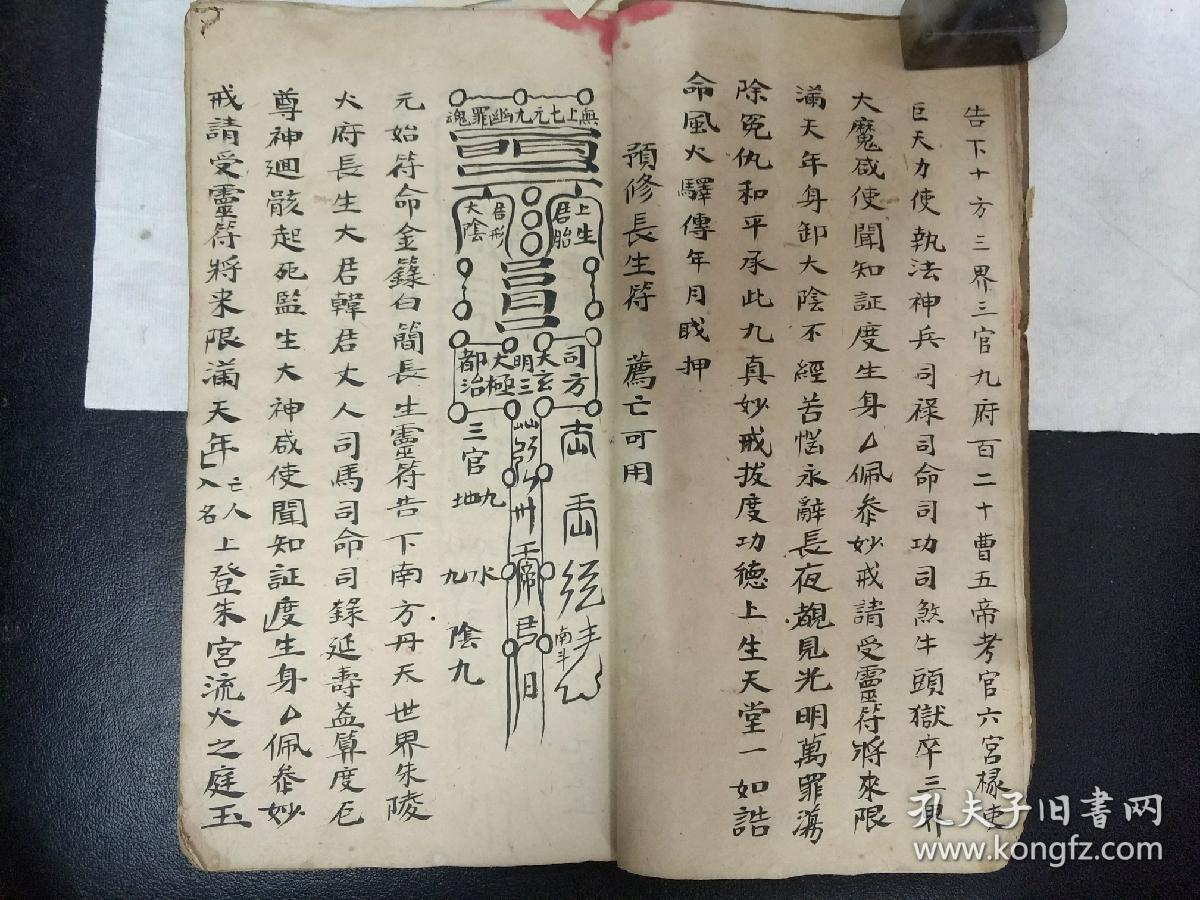 告下十方三界三官九府百二十曹五帝考官六宮掾吏
巨天力使執法神兵司祿司命司功司煞牛頭獄卒三界
大魔咸使聞知証度生身厶佩叅妙戒請受靈符將來限
滿天年身卸大陰不經苦惱永辭長夜覩見光明萬罪蕩
除冤仇和平承此九真妙戒拔度功德上生天堂一如誥
命風火驛傳年月戝押
預修長生符 薦亡可用
無上七元九幽罪魂
上生
君胎
居形
大陰
司方
大玄
三明
大極
都治
三官
九地
九水
九陰
帝君
日
南斗
元始符命金籙白簡長生靈符告下南方丹天世界朱陵
火府長生大君韓君丈人司馬司命司錄延壽益算度厄
尊神廻骸起死監生大神咸使聞知証度生身厶佩叅妙
戒請受靈符將来限滿天年入亡人名上登朱宮流火之庭玉
孔夫子旧书网
www.kongfz.com